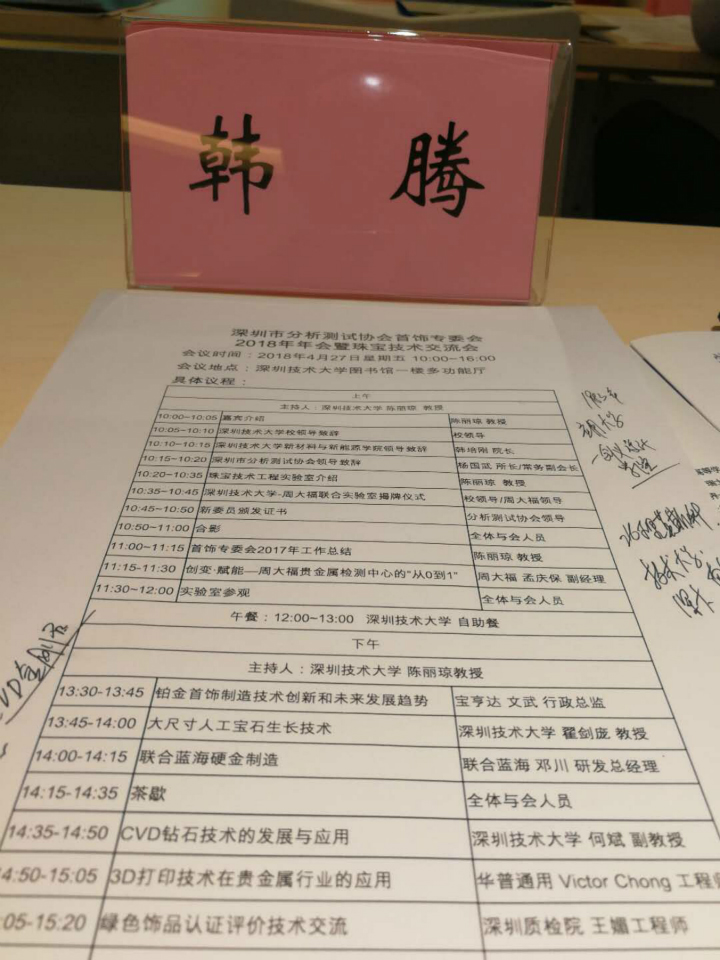 韩 腾
深圳市分析测试协会首饰专委会
2018年年会暨珠宝技术交流会
会议时间：2018年4月27日星期五 10:00~16:00
会议地点：深圳技术大学图书馆一楼多功能厅
具体议程：
上午
主持人：深圳技术大学 陈丽琼 教授
10:00~10:05 嘉宾介绍 陈丽琼 教授
10:05~10:10 深圳技术大学校领导致辞 校领导
10:10~10:15 深圳技术大学新材料与新能源学院领导致辞 韩培刚 院长
10:15~10:20 深圳市分析测试协会领导致辞 杨国武 所长/常务副会长
10:20~10:35 珠宝技术工程实验室介绍 陈丽琼 教授
10:35~10:45 深圳技术大学-周大福联合实验室揭牌仪式 校领导/周大福领导
10:45~10:50 新委员颁发证书 分析测试协会领导
10:50~11:00 合影 全体与会人员
11:00~11:15 首饰专委会2017年工作总结 陈丽琼 教授
11:15-11:30 创变·赋能—周大福贵金属检测中心的“从0到1” 周大福 孟庆保 副经理
11:30~12:00 实验室参观 全体与会人员
午餐：12:00~13:00 深圳技术大学 自助餐
下午
主持人：深圳技术大学 陈丽琼教授
13:30-13:45 铂金首饰制造技术创新和未来发展趋势 宝亨达 文武 行政总监
13:45-14:00 大尺寸人工宝石生长技术 深圳技术大学 翟剑庞 教授
14:00-14:15 联合蓝海硬金制造 联合蓝海 邓川 研发总经理
14:15-14:35 茶歇 全体与会人员
14:35-14:50 CVD钻石技术的发展与应用 深圳技术大学 何斌 副教授
14:50-15:05 3D打印技术在贵金属行业的应用 华普通用 Victor Chong 工程
05-15:20 绿色饰品认证评价技术交流 深圳质检院 王媚工程师